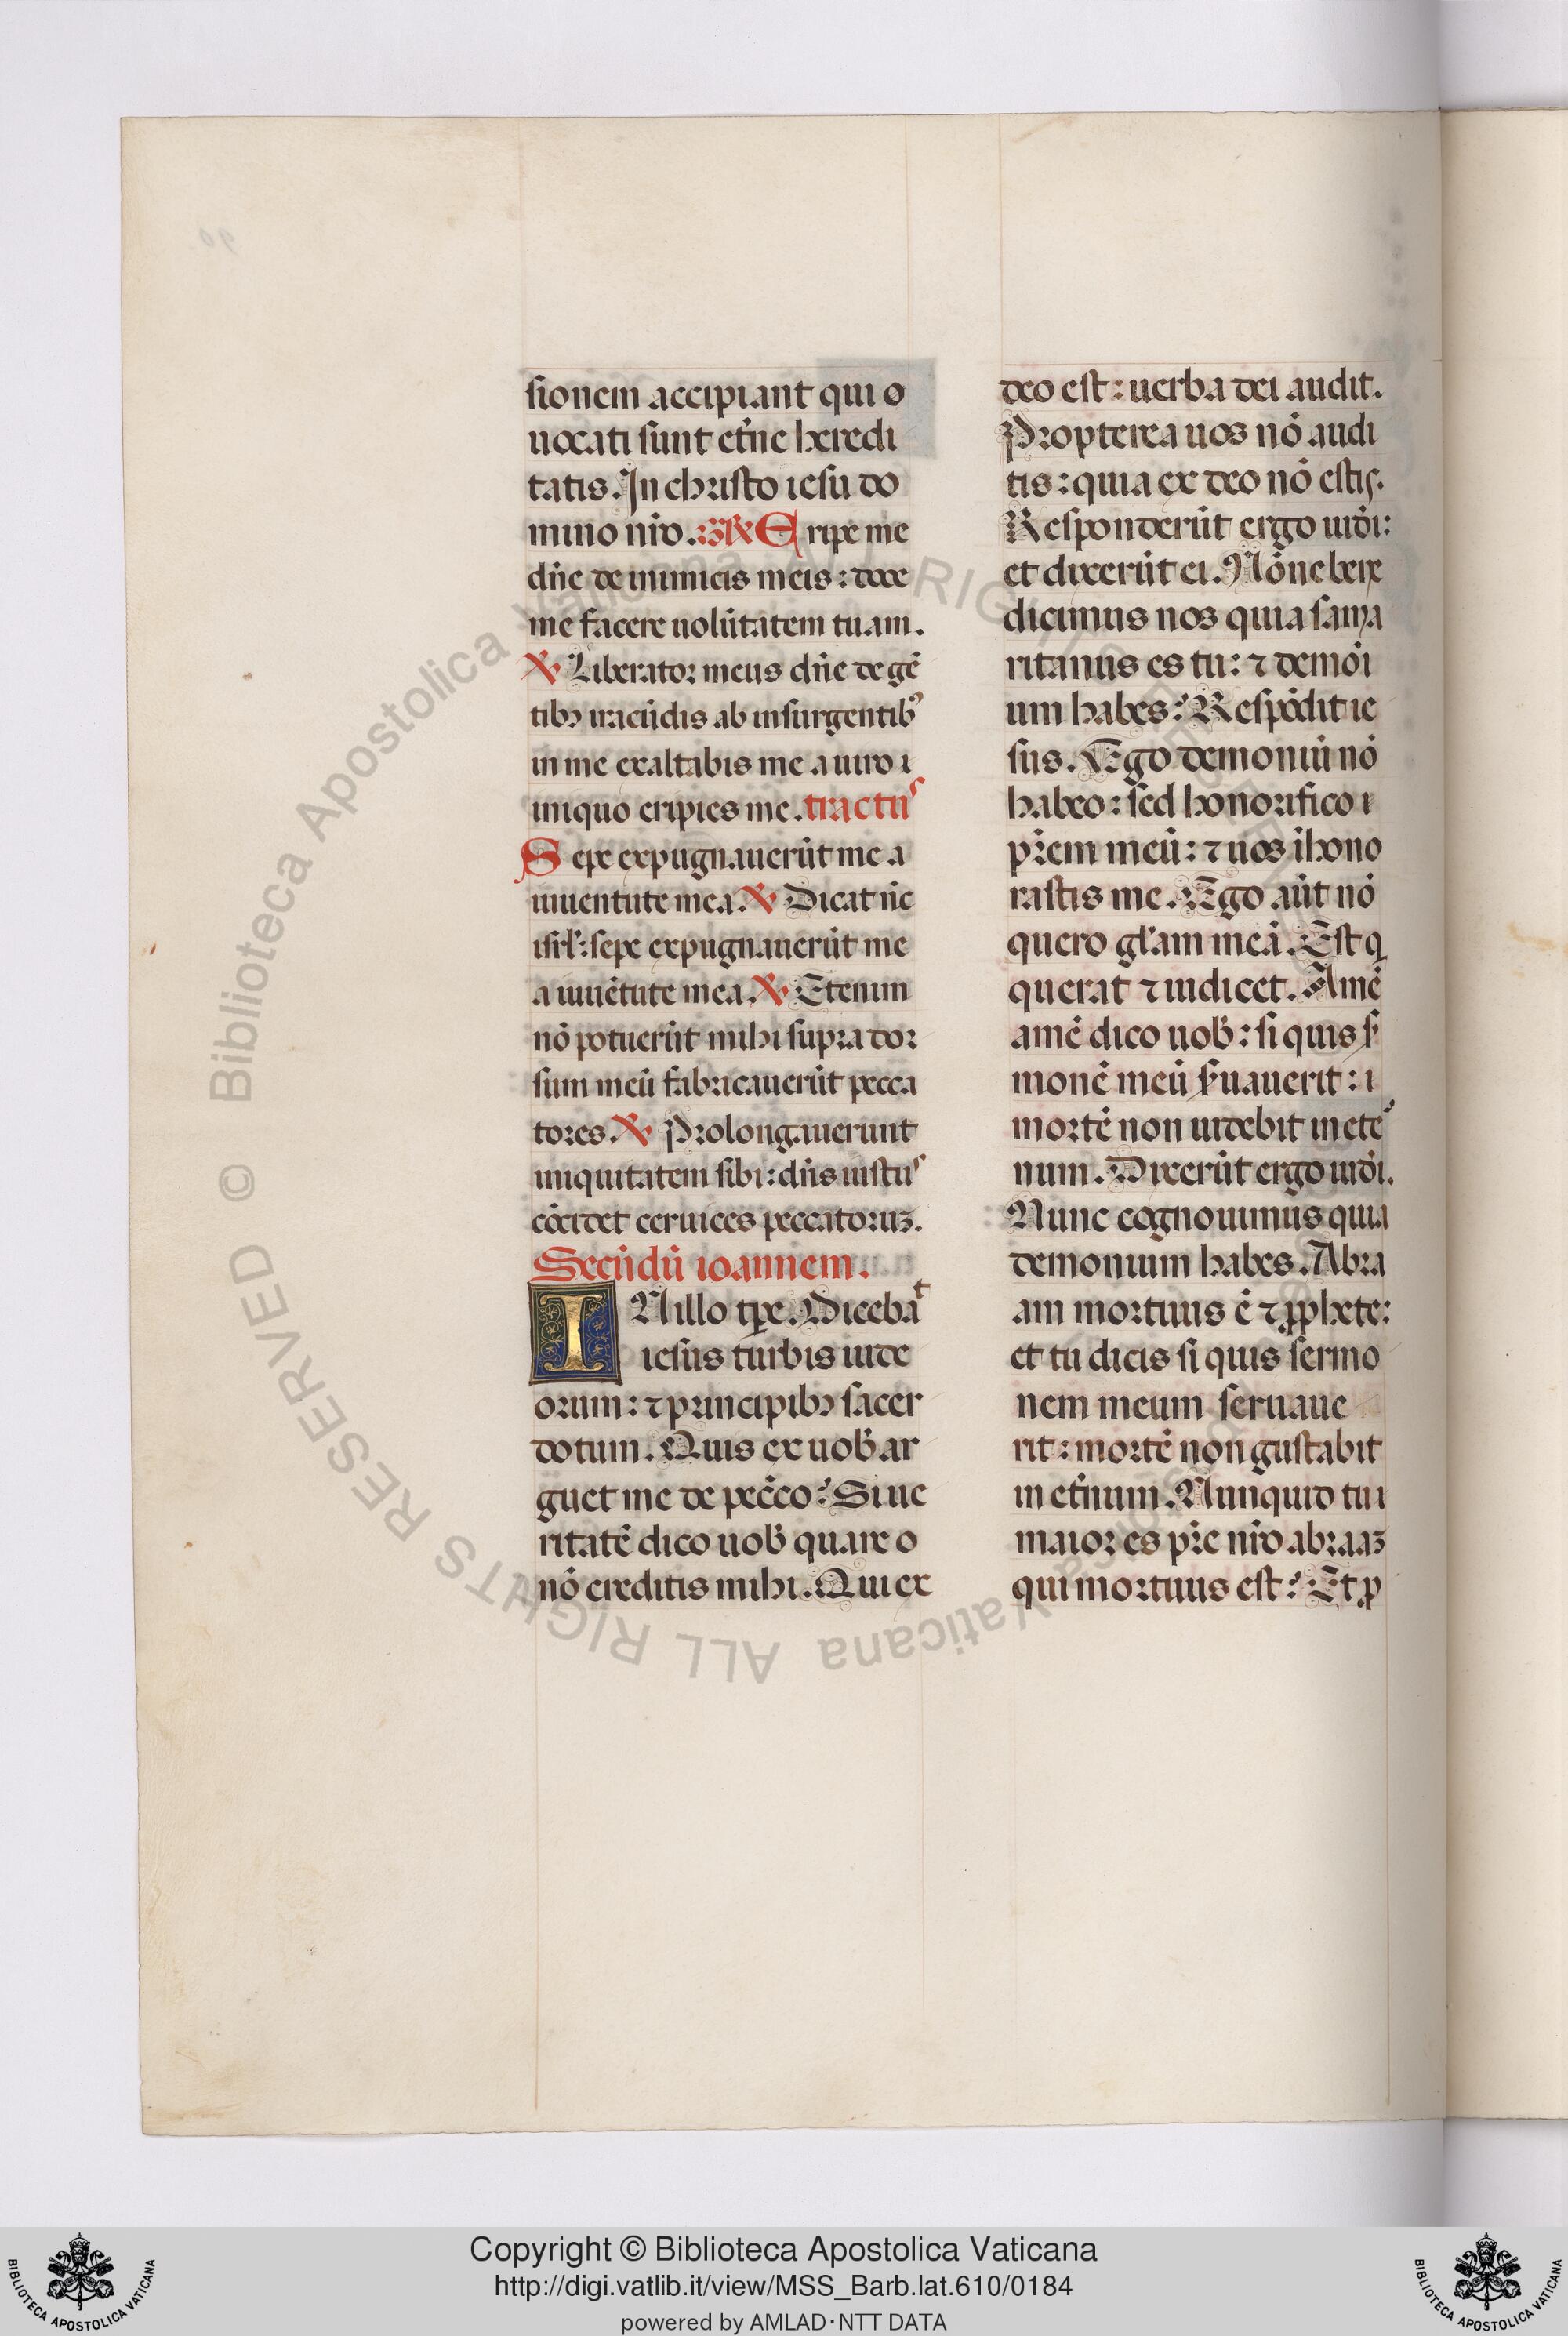 sionem accipiant qui o
uocati sunt et̄ne heredi
tatis. In christo iesu do
mino nr̄o. G̃R Eripe me
dn̄e de inimicis meis: doce
me facere uolūtatem tuam.
℣ Liberator meus dn̄e de gē
tibꝫ iracūdis ab insurgentibꝰ
in me exaltabis me a uiro i
niquo eripies me. tractus
Sepe expugnauerūt me a
iuuentute mea. ℣ Dicat nc̄
isrl̄: sepe expugnauerūt me
a iuuētute mea. ℣ Etenim
nō potuerūt mihi supra dor
sum meū fabricauerūt pecca
tores. ℣ Prolongauerunt
iniquitatem sibi: dn̄s iustus
cōcidet ceruices peccatoruꝫ.
Secūdū ioannem.
IN illo tp̄e. Dicebat
iesus turbis iude
orum: ⁊ principibꝫ sacer
dotum. Quis ex uob̄ ar
guet me de pecc̄o? Si ue
ritatē dico uob̄ quare o
nō creditis mihi. Qui ex
deo est: uerba dei audit.
Propterea uos nō audi
tis: quia ex deo nō estis.
Responderūt ergo iud̄i:
et dixerūt ei. Nōne bene
dicimus nos quia sama
ritanus es tu: ⁊ demōi
um habes? Respōdit ie
sus. Ego demoniū nō
habeo: sed honorifico i
pr̄em meū: ⁊ uos ihono
rastis me. Ego aūt nō
quero gl̄am meā. Est q
querat ⁊ iudicet. Amē
amē dico uob̄: si quis s̄
monē meū s̄uauerit: i
mortē non uidebit in ete
num. Dixerūt ergo iud̄i.
Nunc cognouimus quia
demonium habes. Abra
am mortuus ē ⁊ ꝓphete:
et tu dicis si quis sermo
nem meum seruaue
rit: mortē non gustabit
in et̄num. Nunquid tu i
maior es pr̄e nr̄o abraaꝫ
qui mortuus est? Et ꝓ
Copyright © Biblioteca Apostolica Vaticana
http://digi.vatlib.it/view/MSS_Barb.lat.610/0184
powered by AMLAD·NTT DATA
BIBLIOTECA APOSTOLICA VATICANA
BIBLIOTECA APOSTOLICA VATICANA
© Biblioteca Apostolica Vaticana ALL RIGHTS RESERVED